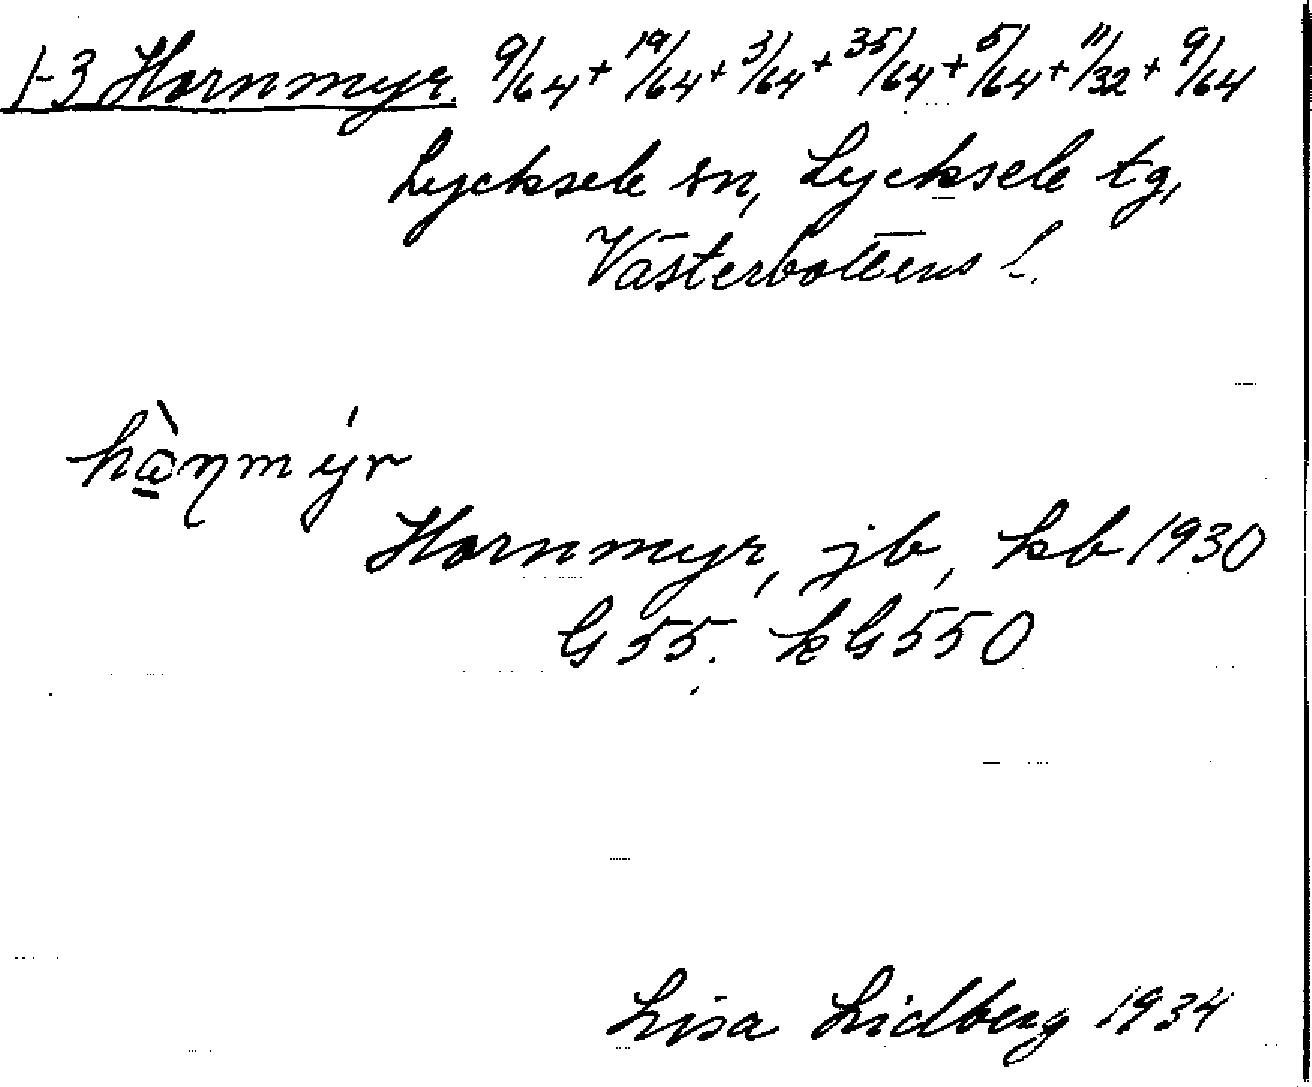 1-3 Hornmyr. 9/64 + 19/64 + 3/64 + 35/64 + 5/64 + 11/32 + 9/64
Lycksele sn, Lycksele tg,
Västerbottens l.
hɷ̠̀ηmýr
Hornmyr, jb, kb 1930
G 55. kG 550
Lisa Lidberg 1934